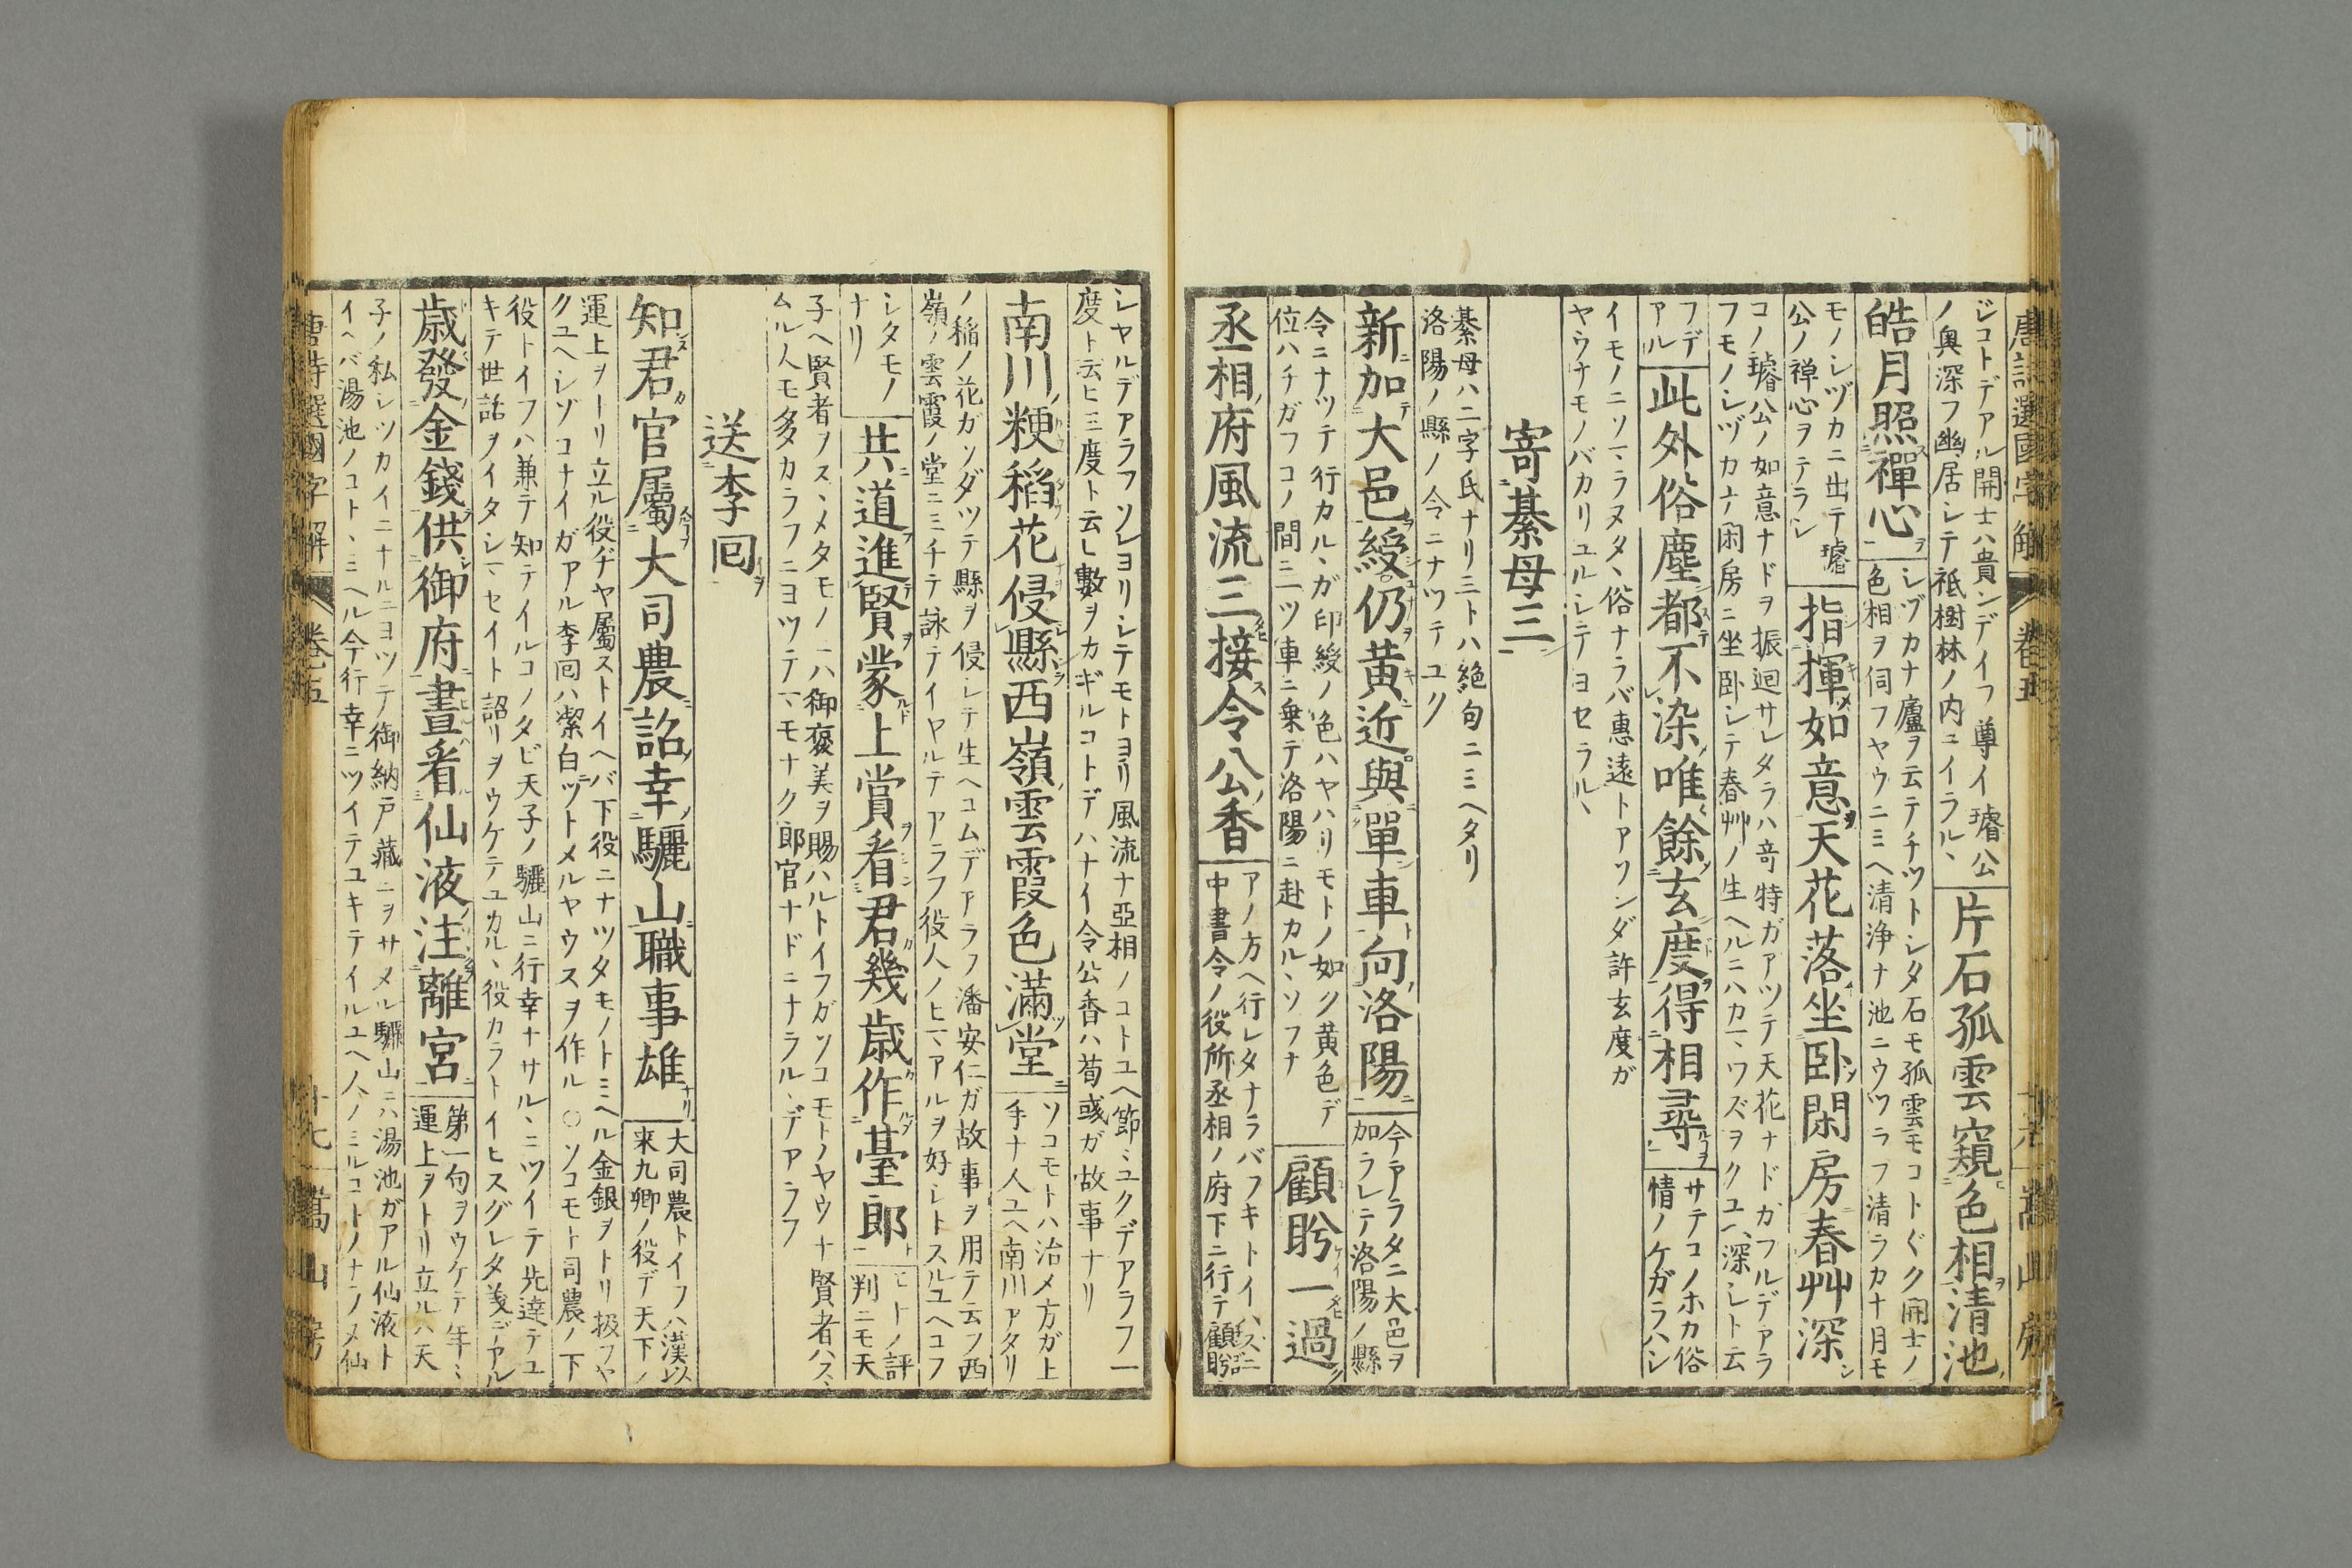 唐詩選國字解 卷五 嵩山房
ジコトデアル開士ハ貴ンデイフ尊イ璿公
ノ奥深フ幽居シテ祇樹林ノ内ニイラル丶
片石孤雲窺色相清池
皓月照禪心
シヅカナ廬ヲ云テチツトシタ石モ孤雲モコト〲ク開士ノ
色相ヲ伺フヤウニミヘ清浄ナ池ニウツラフ清ラカナ月モ
モノシヅカニ出テ璿
公ノ禅心ヲテラシ
指揮如意天花落坐卧閑房春艸深
コノ璿公ノ如意ナドヲ振廻サレタラハ竒特ガアツテ天花ナドガフルデアラ
フモノシヅカナ閑房ニ坐卧シテ春艸ノ生ヘルニハカマワズヲクユヘ深シト云
フデ
アル
此外俗塵都不染唯餘玄度得相尋
サテコノホカ俗
情ノケガラハシ
イモノニソマラヌタ丶俗ナラバ惠遠トアソンダ許玄度ガ
ヤウナモノバカリユルシテヨセラル丶
寄綦母三
綦母ハ二字氏ナリ三トハ絶句ニミヘタリ
洛陽ノ縣ノ令ニナツテユク
新加大邑綬仍黄近與單車向洛陽
今アラタニ大邑ヲ
加ラレテ洛陽ノ縣
令ニナツテ行カル丶ガ印綬ノ色ハヤハリモトノ如ク黄色デ
位ハチガフコノ間ニ一ツ車ニ乗テ洛陽ニ赴カル丶ソフナ
顧盻一過
丞相府風流三接令公香
アノ方ヘ行レタナラバフキトイハズニ
中書令ノ役所丞相ノ府下ニ行テ顧盻
シヤルデアラフソレヨリシテモトヨリ風流ナ亞相ノコトユヘ節〻ユクデアラフ一
度ト云ヒ三度ト云シ數ヲカギルコトデハナイ令公香ハ荀彧ガ故事ナリ
南川粳稻花侵縣西嶺雲霞色滿堂
ソコモトハ治メ方ガ上
手ナ人ユヘ南川アタリ
ノ稲ノ花ガソダツテ縣ヲ侵シテ生ヘコムデアラフ潘安仁ガ故事ヲ用テ云フ西
嶺ノ雲霞ノ堂ニミチテ詠テイヤルテアラフ役人ノヒマアルヲ好シトスルユヘコフ
シタモノ
ナリ
共道進賢蒙上賞看君幾歳作臺郎
モトノ評
判ニモ天
子ヘ賢者ヲス丶メタモノハ御褒美ヲ賜ハルトイフガソコモトノヤウナ賢者ハス丶
ムル人モ多カラフニヨツテマモナク郎官ナドニナラル丶デアラフ
送李囘
知君官屬大司農詔幸驪山職事雄
大司農トイフハ漢以
来九卿ノ役デ天下ノ
運上ヲトリ立ル役ヂヤ屬ストイヘバ下役ニナツタモノトミヘル金銀ヲトリ扱フヤ
クユヘシゾコナイガアル李囘ハ潔白デツトメルヤウスヲ作ル○ソコモト司農ノ下
役トイフハ兼テ知テイルコノタビ天子ノ驪山ニ行幸ナサル丶ニツイテ先達テユ
キテ世話ヲイタシマセイト詔リヲウケテユカル丶役カラトイヒスグレタ義デアル
歳發金錢供御府晝看仙液注離宮
第一句ヲウケテ年〻
運上ヲトリ立ルハ天
子ノ私シツカイニナルニヨツテ御納戸藏ニヲサメル驪山ニハ湯池ガアル仙液ト
イヘバ湯池ノコト丶ミヘル今行幸ニツイテユキテイルユヘ人ノミルコトノナラヌ仙
唐詩選國字解 卷五 十七 嵩山房